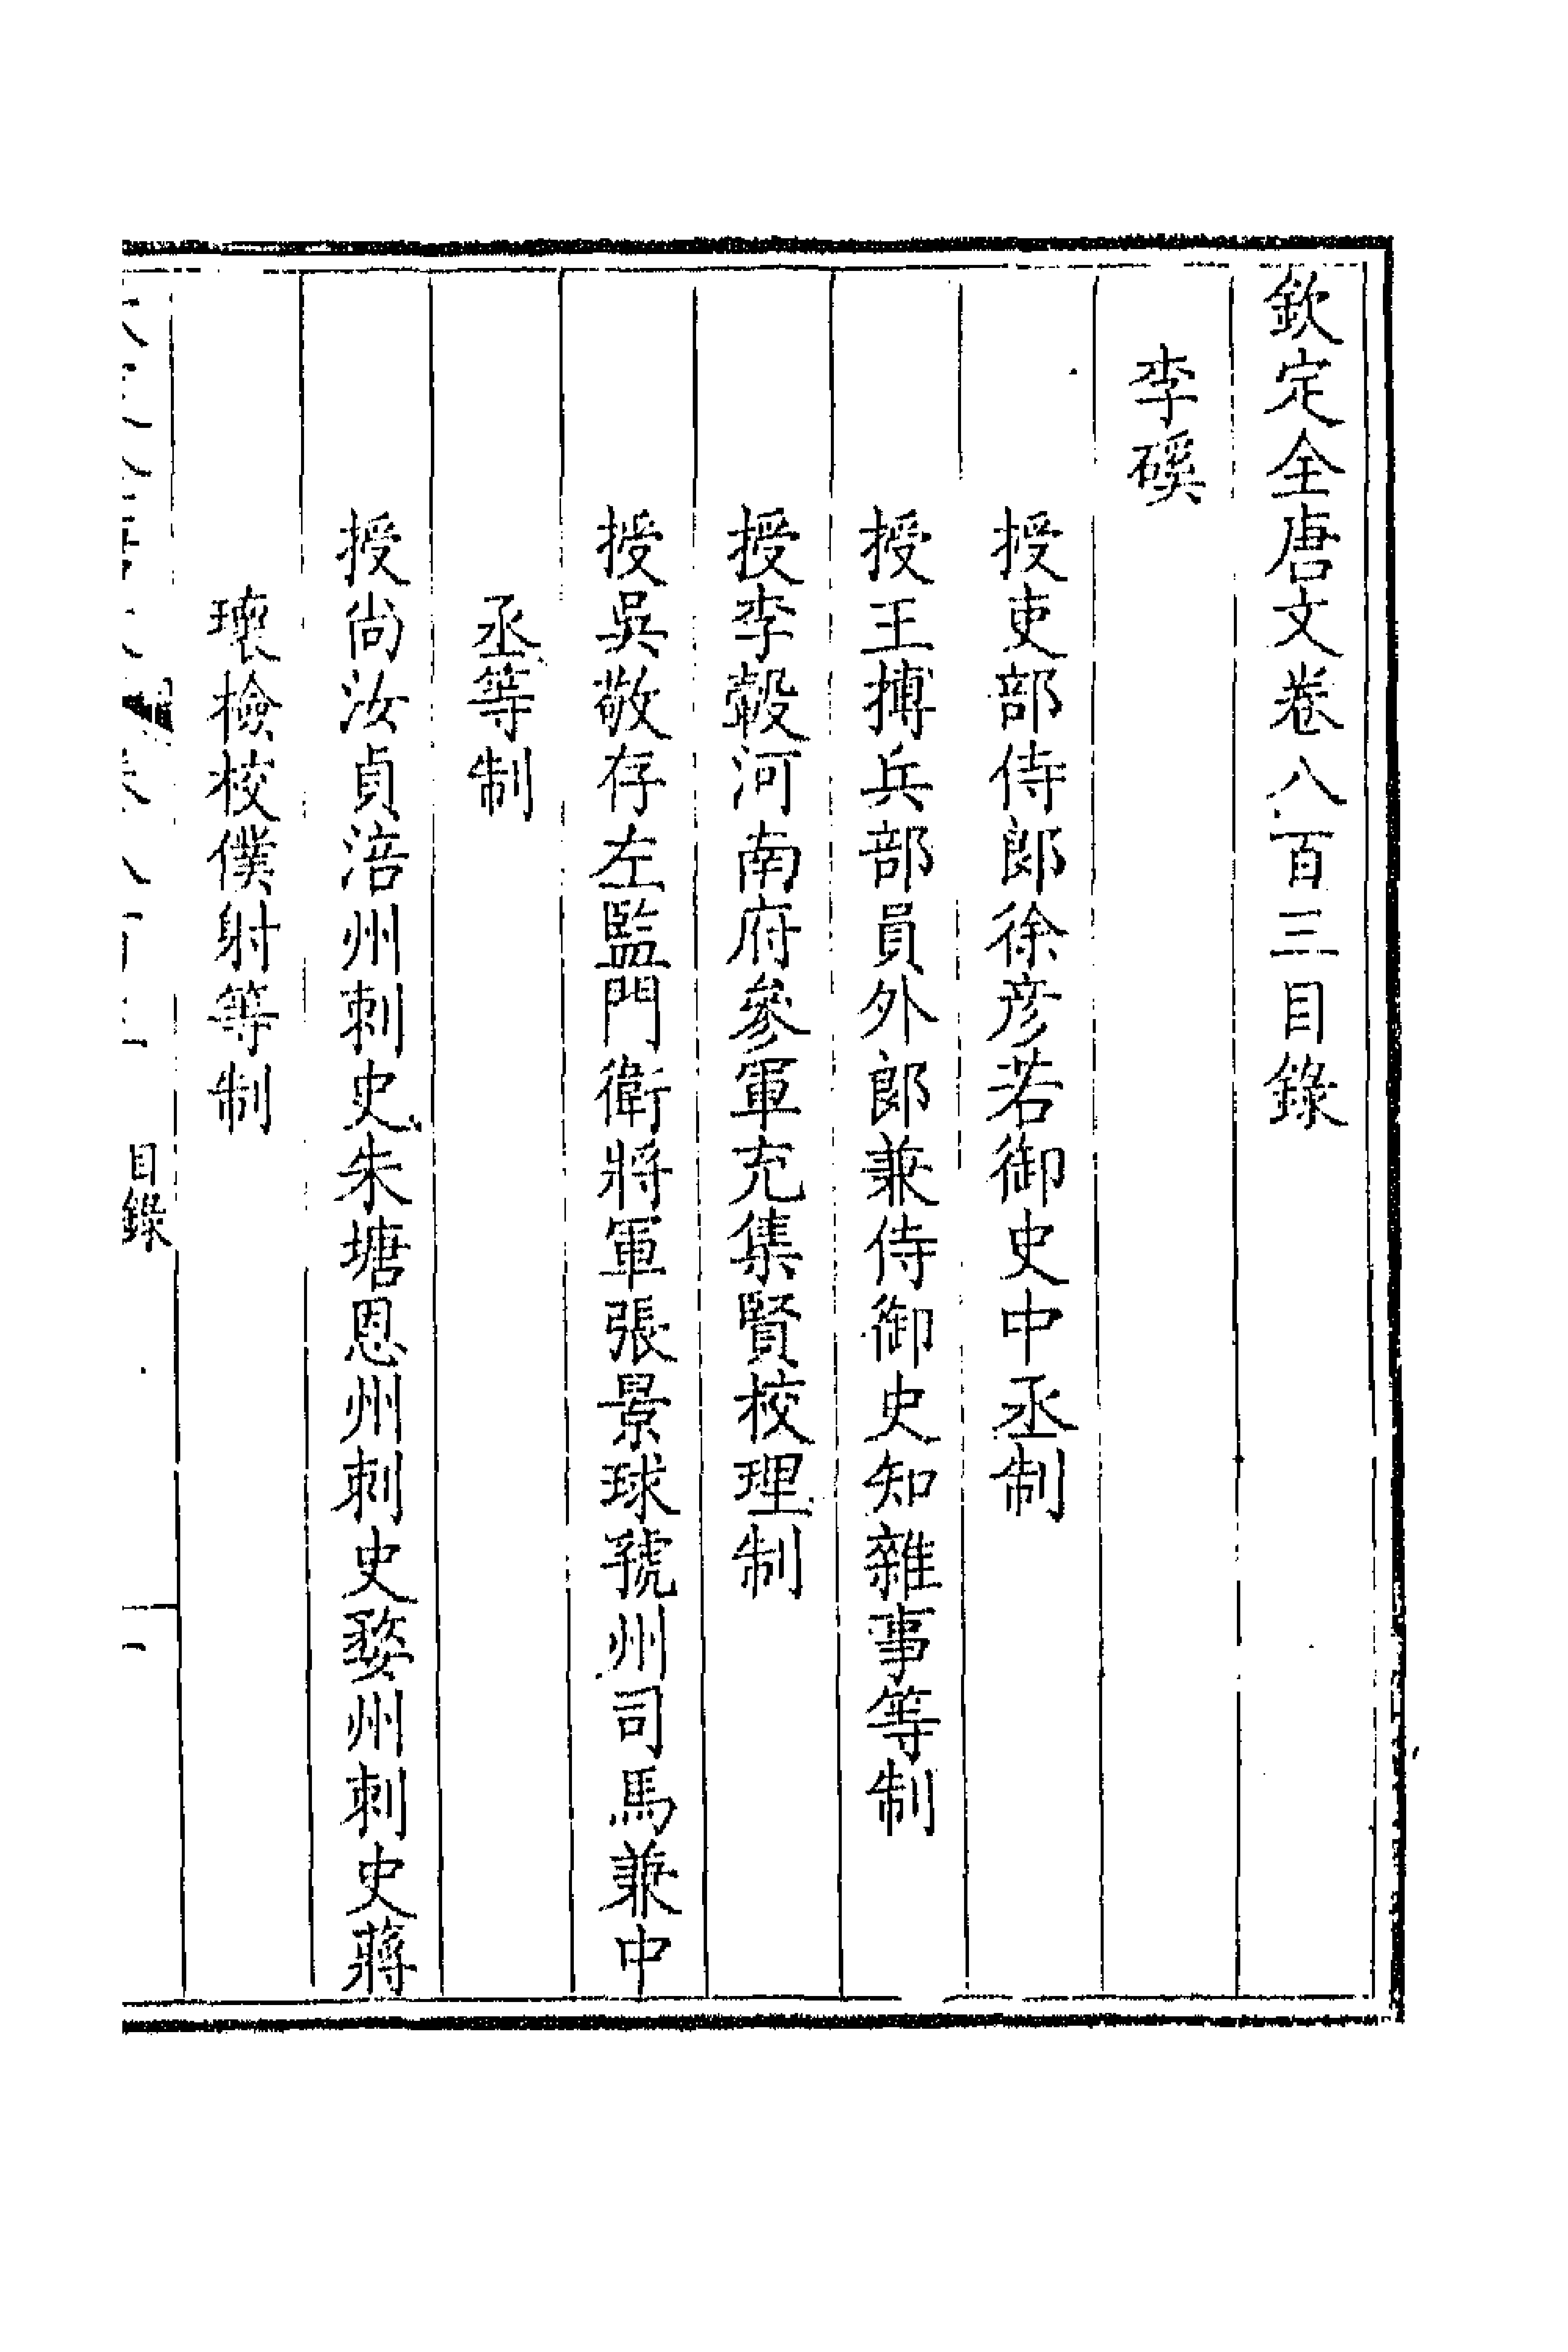 欽定全唐文卷八百三目錄
李磎
授吏部侍郎徐彥若御史中丞制
授王摶兵部員外郎兼侍御史知雜事等制
授李瑴河南府參軍充集賢校理制
授吳敬存左監門衛將軍張景球虢州司馬兼中
丞等制
授尚汝貞涪州刺史朱塘恩州刺史婺州刺史蔣
瓌檢校僕射等制
目錄